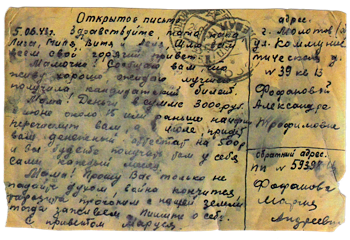 Открытое письмо
5.06.43г. Здравствуйте, папа, мама
Лиза, Миля, Витя и Леня. Шлю вам
всем свой горячий привет.
Мамочка! Сообщаю вам что
живу хорошо
получила кандидатский билет.
Мама! Деньги в сумме 3000 руб.
июне около 15 или раньше начфин
перечислит вам, а в июле придет
вам денежный аттестат на 500р
и вы будете получать там у себя
сами каждый месяц
Мама! Прошу Вас только не
падайте духом война кончится
прогоним с нашей земли
тогда заживем. Пишите о себе.
С приветом Маруся
адрес.
г. Молотов
ул. Коммунис
тическая д.
№ 39 кв 13
Фофановой
Александре
Трофимовне
обратный адрес.
пп № 59398
Фофанова
Мария
Андреевна